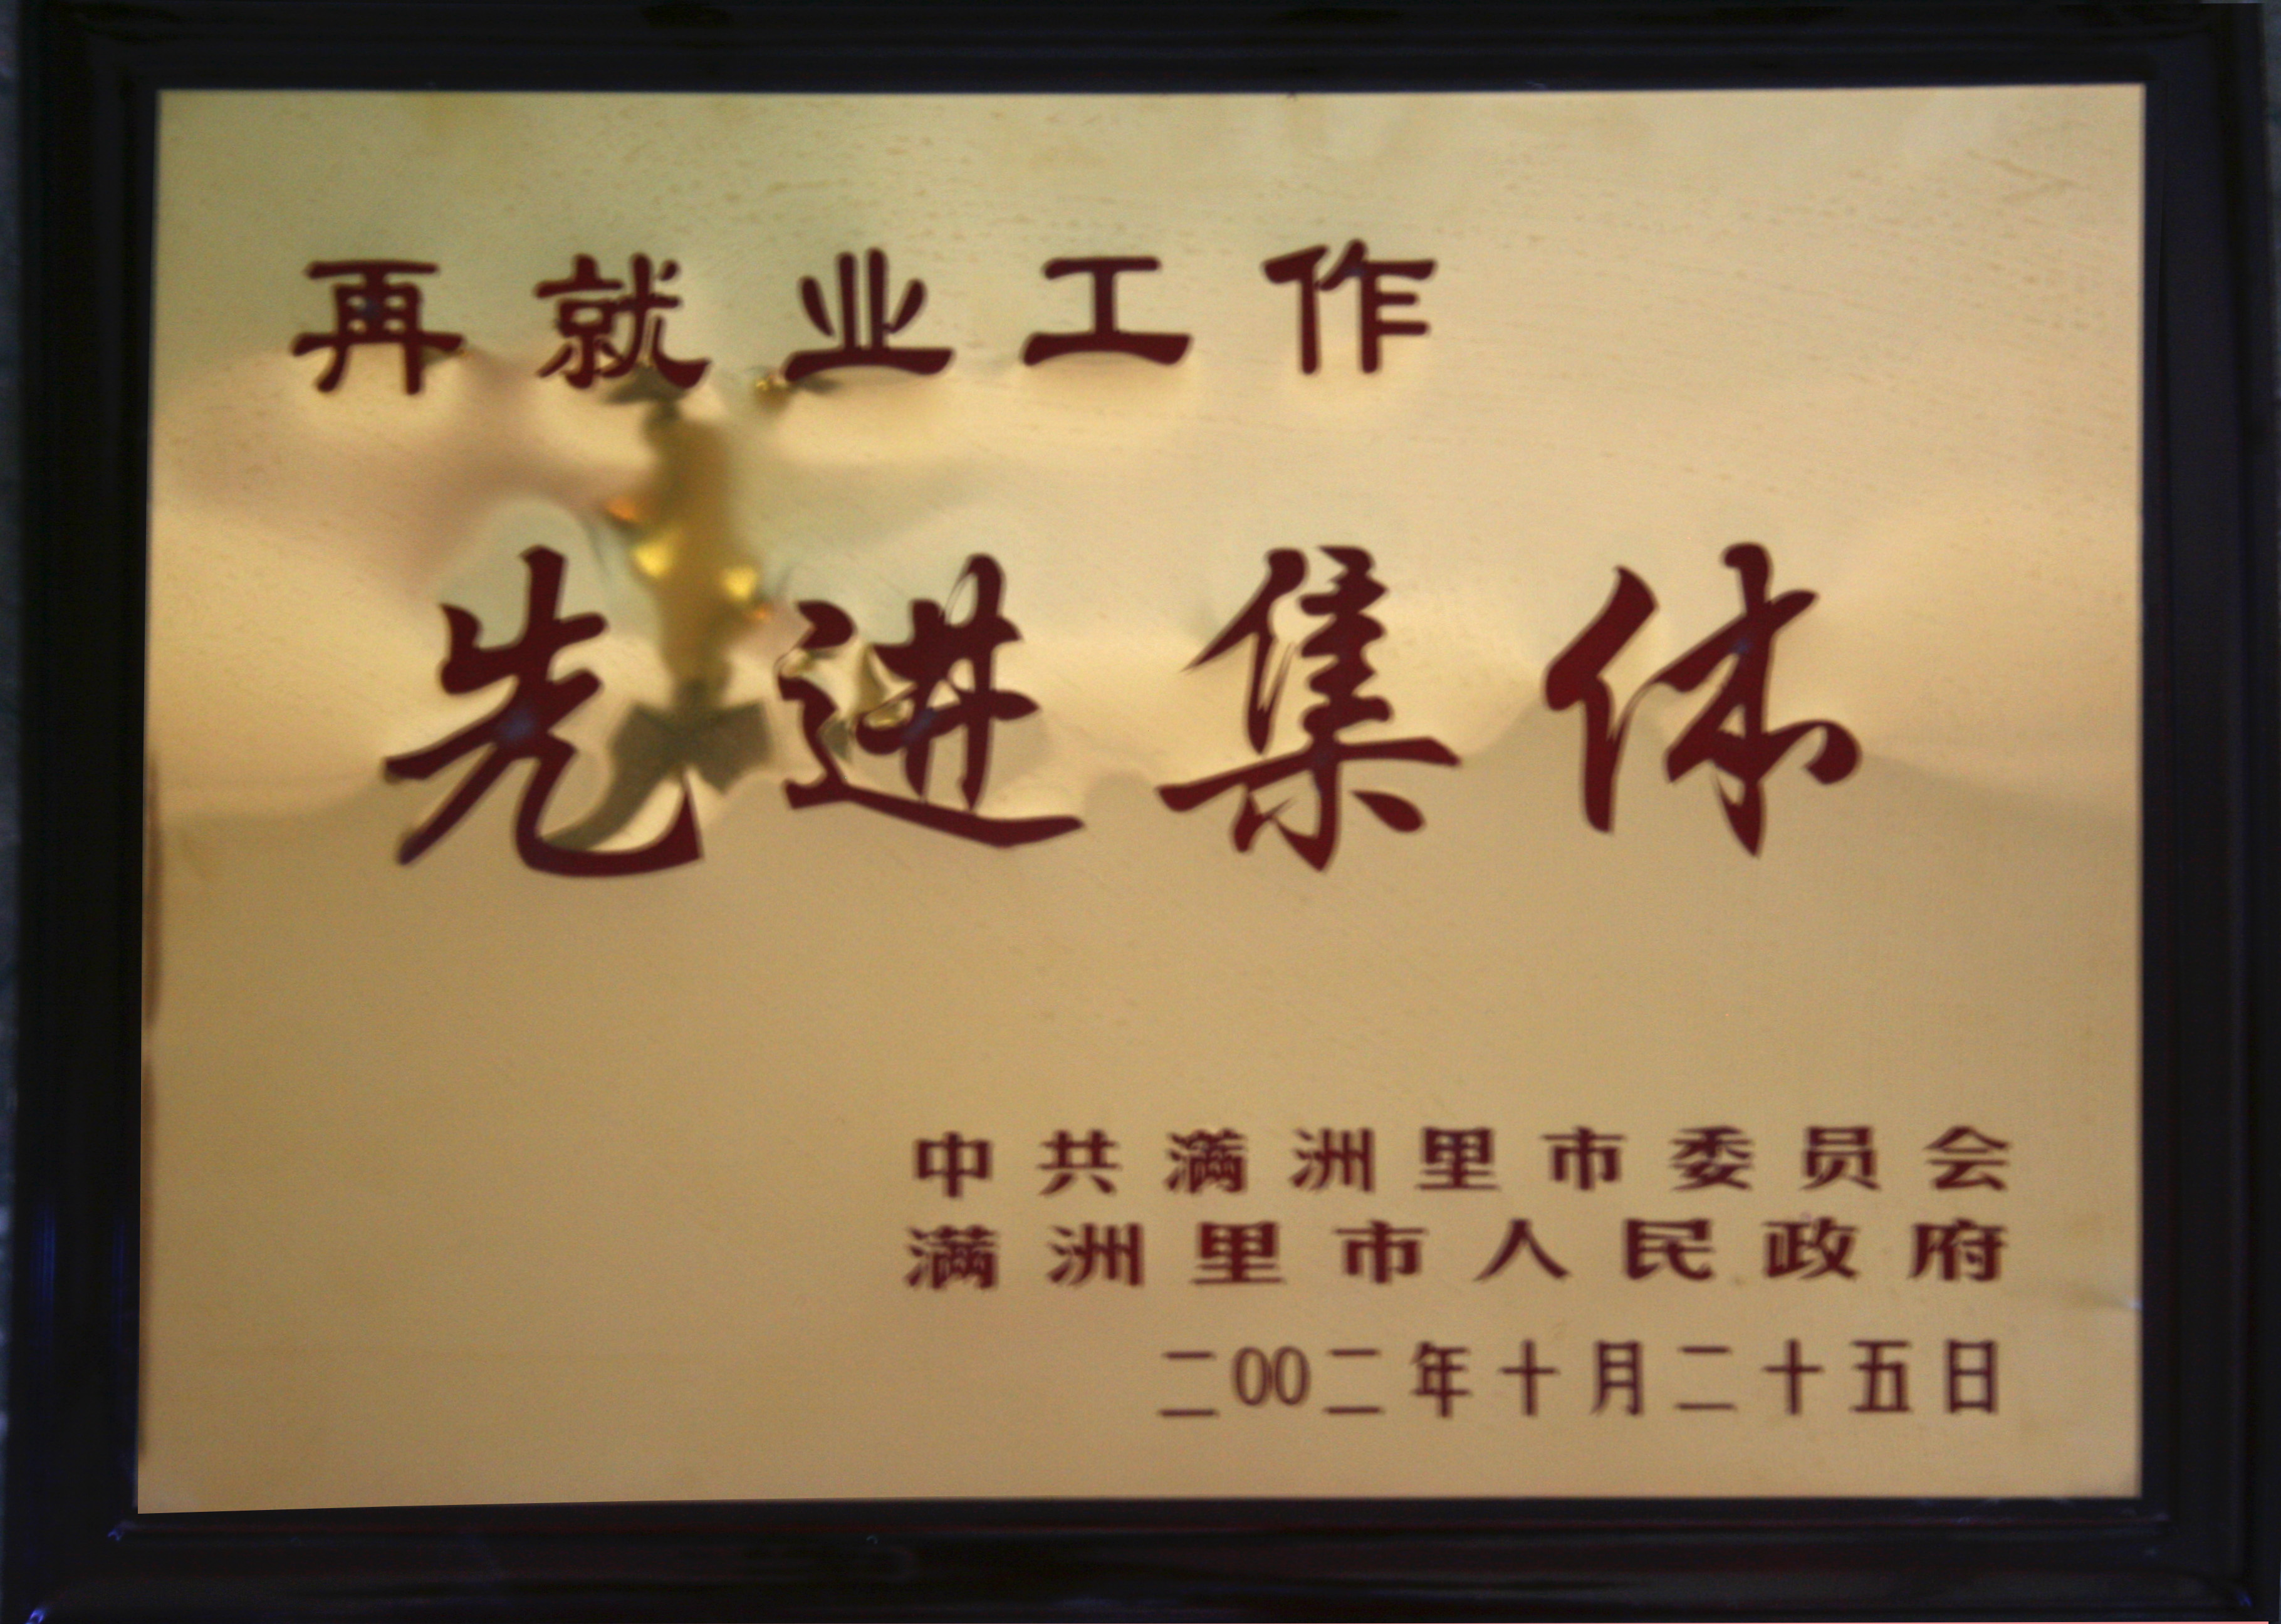 再就业工作
先进集体
中共满洲里市委员会
满洲里市人民政府
二00二年十月二十五日